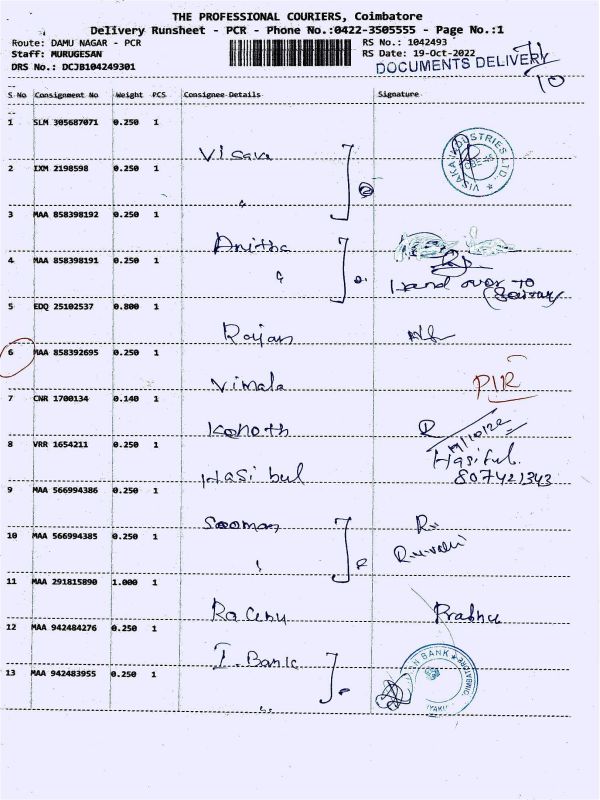 THE PROFESSIONAL COURIERS, Coimbatore
Delivery Runsheet - PCR - Phone No.:0422-3505555 - Page No.:1
Route: DAMU NAGAR - PCR RS No.: 1042493
Staff: MURUGESAN RS Date: 19-Oct-2022
DRS No.: DCJB104249301 DOCUMENTS DELIVERY
10
S No Consignment No Weight PCS Consignee Details Signature
1 SLM 305687071 0.250 1
Visaka
VISAKA INDUSTRIES LTD.
2 IXM 2198598 0.250 1
"
3 MAA 858398192 0.250 1
Anitha
4 MAA 858398191 0.250 1
"
Hand over to
(Security
5 EDQ 25102537 0.800 1
Rajan
6 MAA 858392695 0.250 1
Vimala PIR
7 CNR 1700134 0.140 1
19/10/22
8 VRR 1654211 0.250 1
Hasibul
Hasibul
807421343
9 MAA 566994386 0.250 1
Sooman
10 MAA 566994385 0.250 1
11 MAA 291815890 1.000 1
Prabhu
12 MAA 942484276 0.250 1
I. Bank
13 MAA 942483955 0.250 1
BANK